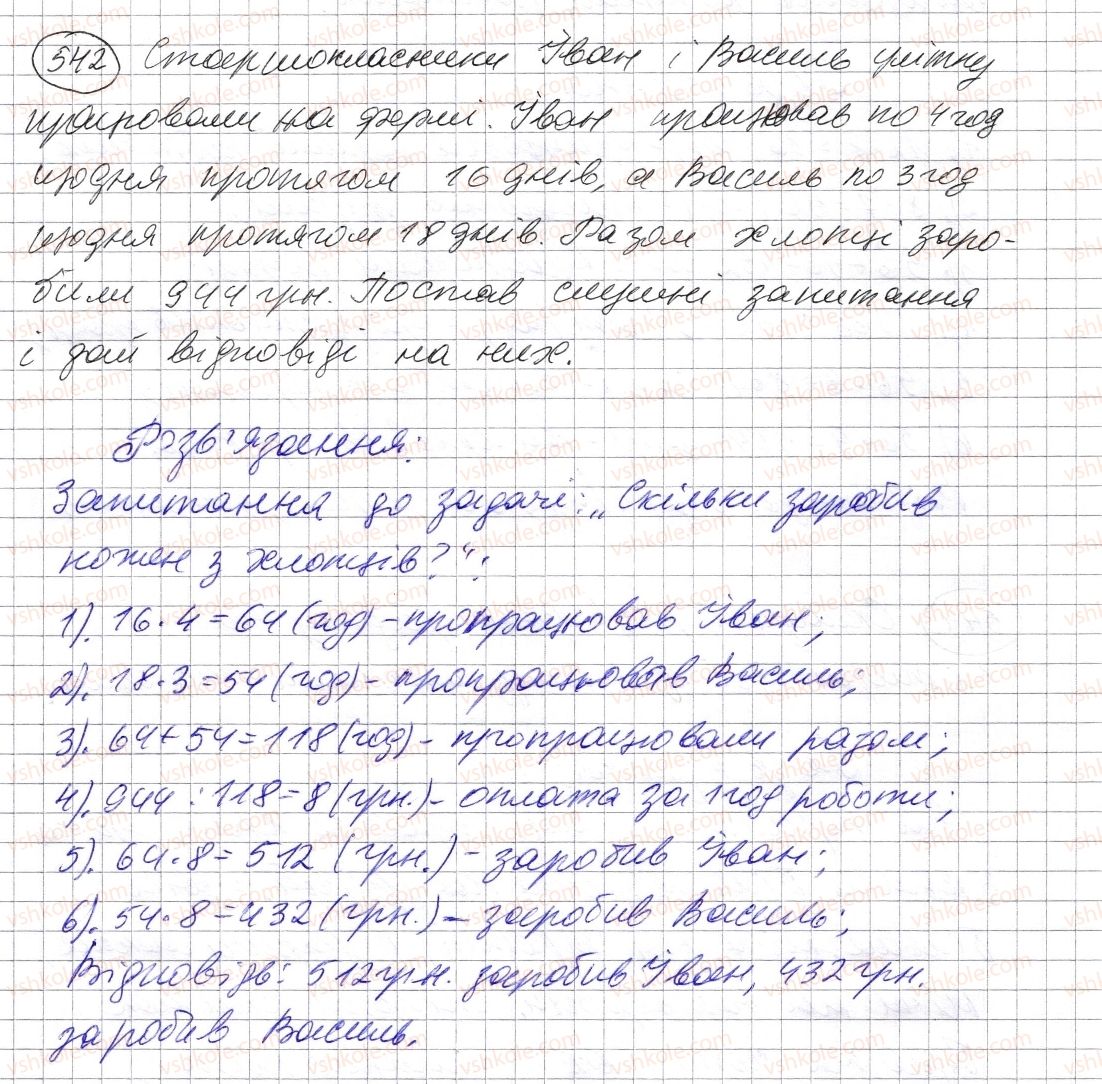 542 Старшокласники Іван і Василь улітку
працювали на фермі. Іван працював по 4 год
щодня протягом 16 днів, а Василь по 3 год
щодня протягом 18 днів. Разом хлопці заро-
били 944 грн. Постав слушні запитання
і дай відповіді на них.
Розв'язання:
Запитання до задачі: „Скільки заробив
кожен з хлопців?":
1). 16·4=64(год)-пропрацював Іван;
2). 18·3=54(год)-пропрацював Василь;
3). 64+54=118(год)-пропрацювали разом;
4). 944:118=8(грн.)-оплата за 1 год роботи;
5). 64·8=512(грн.)-заробив Іван;
6). 54·8=432(грн.)-заробив Василь;
Відповідь: 512 грн. заробив Іван, 432 грн.
заробив Василь.